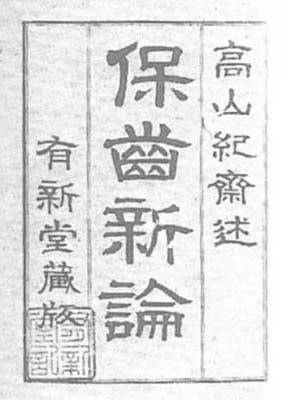 高山紀齋述
保齒新論
有新堂藏版